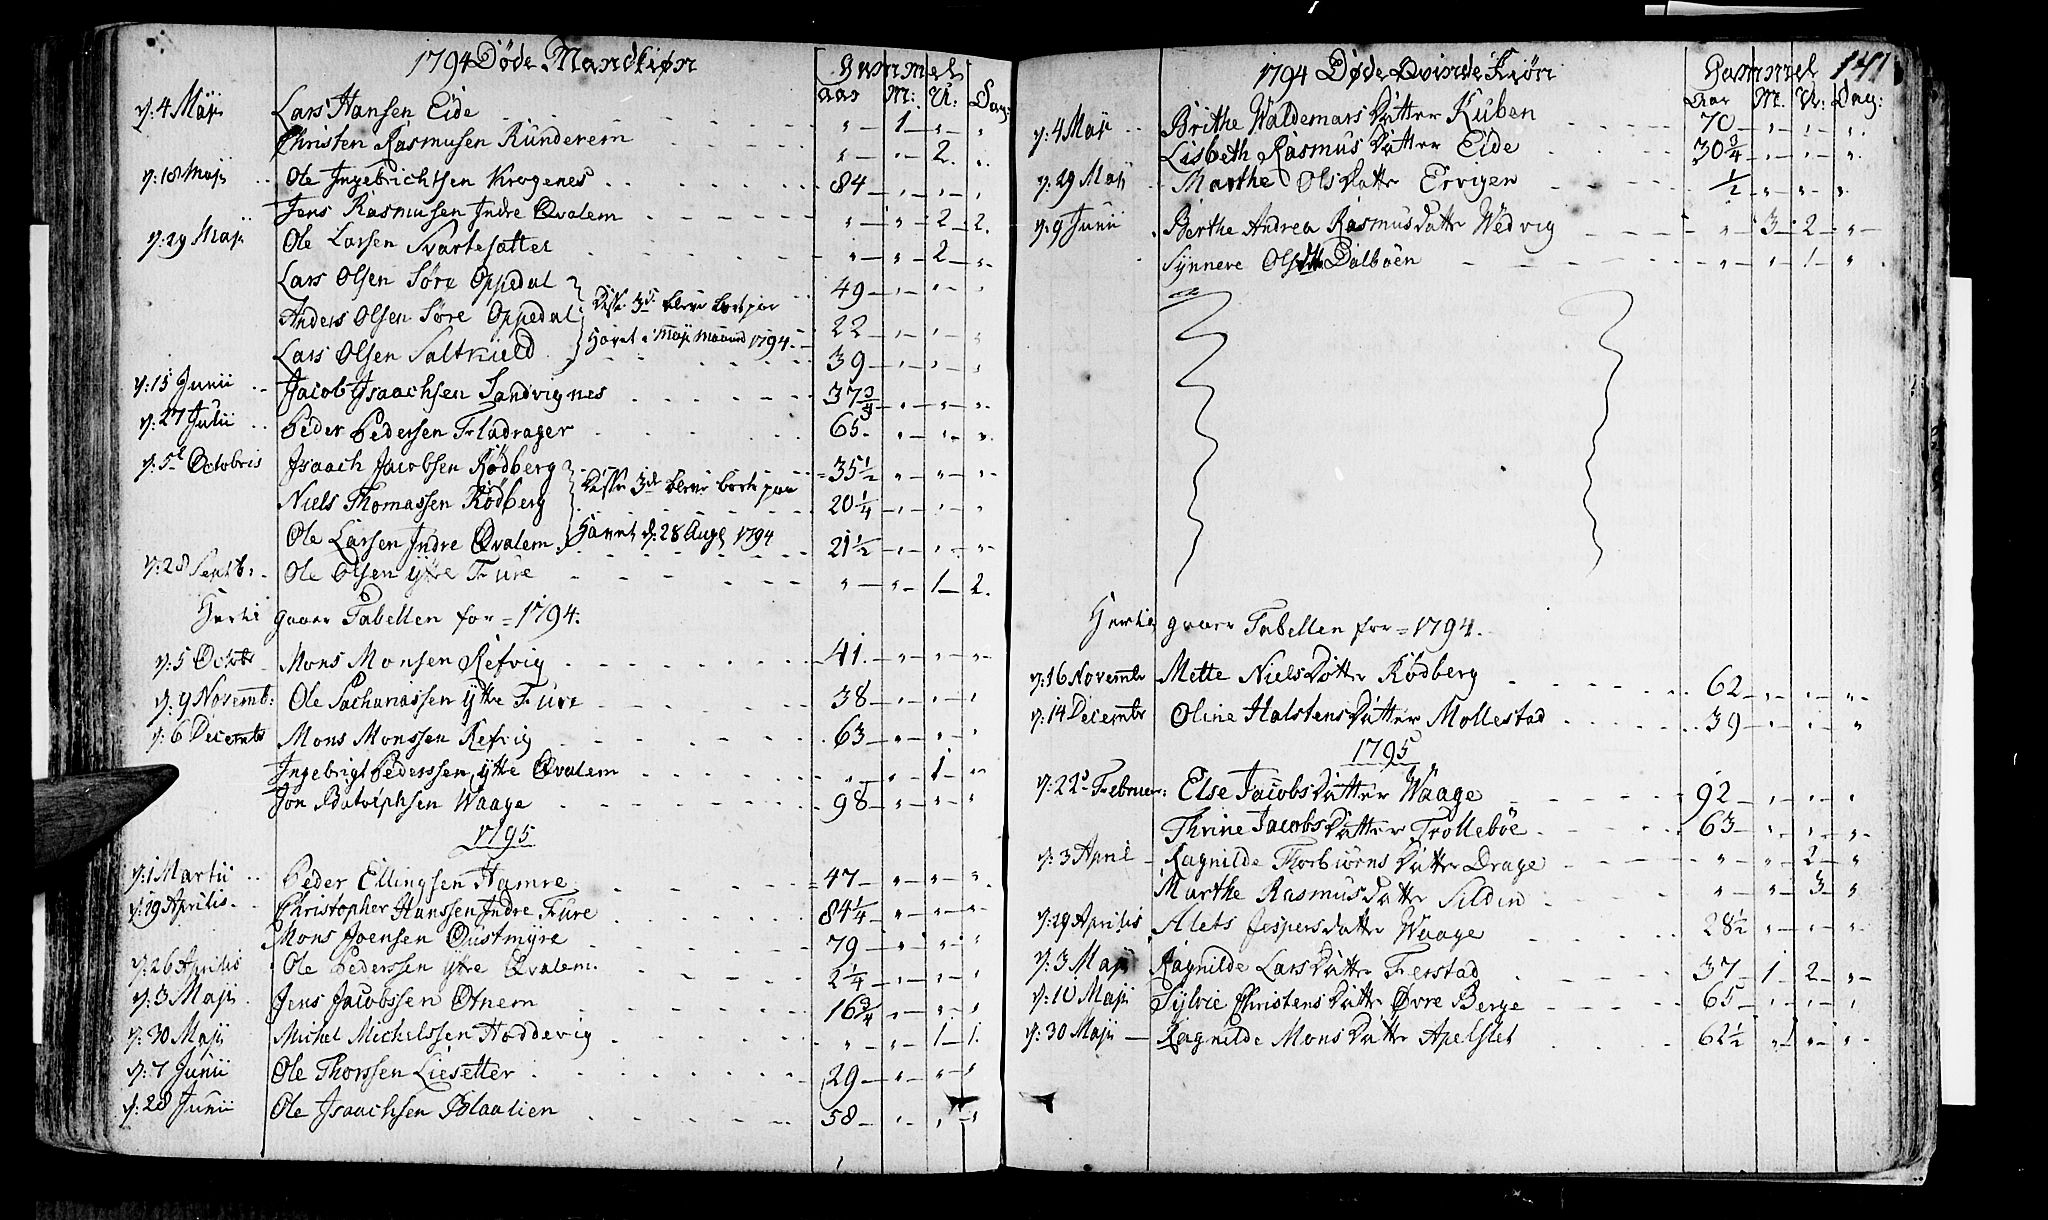 1794 Døde Mandkiøn
Gammel
Aar M: U: Dag:
d: 4 Maji Lars Hansen Eide " 1 " "
Christen Rasmusen Runderem " " 2. "
d: 18 Maji Ole Ingebrichtsen Krogenes 84 " " "
Jens Rasmusen Indre Qvalem " " 2 2.
d: 29 Maji Ole Larsen Svartesætter " " 2 "
Lars Olsen Søre Oppedal 49 " " "
Disse 3de bleve bort paa
Anders Olsen Søre Oppedal 22 " " "
Havet i Maji Maaned 1794.
Lars Olsen Saltkield 39 " " "
d: 15 Junii Jacob Isaachsen Sandvignes 37 3/4 " " "
d: 27 Julii Peder Pedersen Fladrager 65. " " "
d: 5te Octobris Isaach Jacobsen Rødberg 35 1/2 " " "
Disse 3de bleve bort paa
Niels Thomassen Rødberg 20 1/4 " " "
Havet d: 28 Aug 1794
Ole Larsen Indre Qvalem 21 1/2 " " "
d: 28 Septb: Ole Olsen Ytre Fure " " 1 2.
Hertil gaaer Tabellen for 1794.
d: 5 Octobr Mons Monsen Refvig 41. " " "
d: 9 Novemb: Ole Sachariassen Ytre Fure 38 " " "
d: 6 Decembr Mons Monssen Refvig 63 " " "
Ingebrigt Pederssen Ytte Qvalem " " 1 "
Jon Waage 98 " " "
1795
d: 1 Martii Peder Ellingsen Hamre 47 " " "
d: 19 Aprilis Christopher Hanssen Indre Fure 84 1/4 " " "
Mons Joensen Oustmyre 79 " " "
d: 26 Aprilis Ole Pederssen Ytre Qvalem. 2 1/4 " " "
d: 3 Maji Jens Jacobssen Otnem 16 3/4 " " "
d: 30 Maji Michel Michelssen Hoddevig " " 1 1.
d: 7 Junii Ole Thorssen Liesetter 29 " " "
d: 28 Junii Ole Isaachsen Blaalien 58 " " "
1794 Døde Qvinde Kiøn
Gammel 141
Aar M. U: Dag:
d: 4 Maji Brithe Waldemars Datter Kuben 70 " " "
Lisbeth Rasmus Datter Eide 30 3/4 " " "
d: 29 Maji Marthe Ols Datter Ervigen 1/2 " " "
d: 9 Junii Berthe Andrea Rasmus Datter Wedvig " 3 2 "
Synneve Ols Dalbøen " " 1 "
Hertil gaaer Tabellen for 1794.
d: 16 Novembr Mette Niels Datter Rødberg 62 " " "
d: 14 Decembr Oline Halstens Datter Mollestad 39 " " "
1795
d: 22 Februar: Else Jacobs Datter Waage 92 " " "
Thrine Jacobs Datter Trollebøe 63 " " "
d: 3 April Ragnilde Thorbiørns Datter Drage " " 2 "
Marthe Rasmus Datter Sildin " " 3 "
d: 29 Aprilis Alets Jespers Datter Waage 28 1/2 " " "
d: 3 Maji Ragnilde Lars Datter Ferstad 37 1 2 "
d: 10 Maji Sylvie Christens Datter Øvre Berge 65 " " "
d: 30 Maji Ragnilde Mons Datter Apelset 62 1/2 " " "